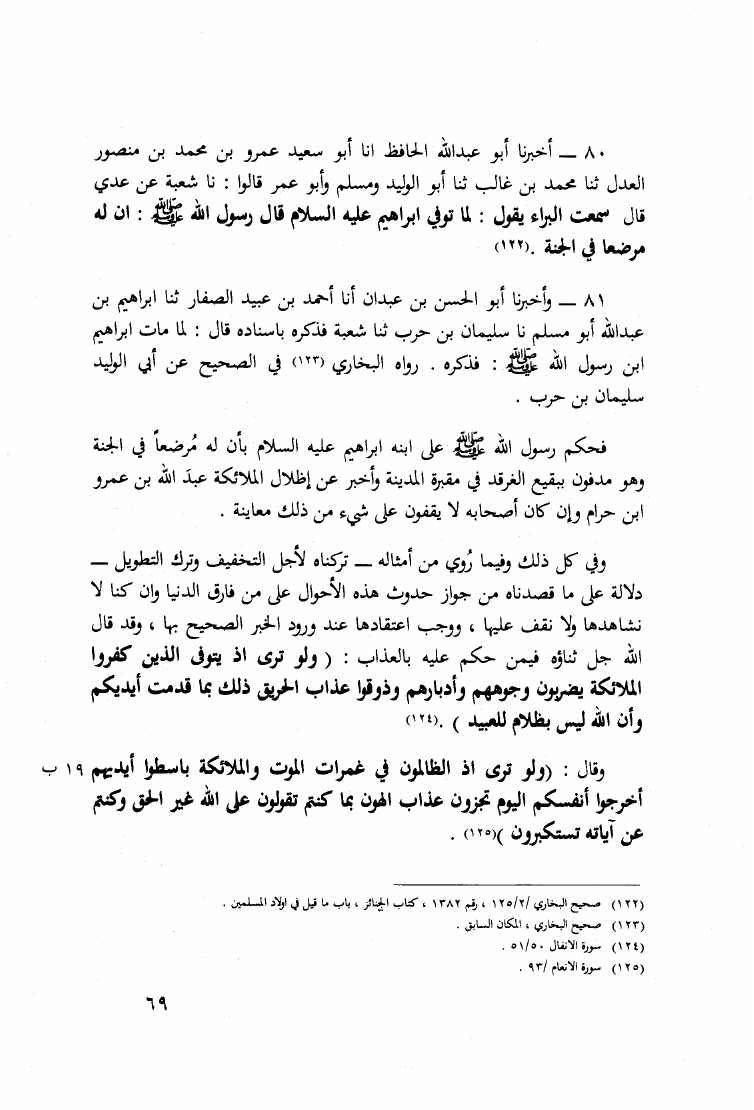 ٨٠ ــ أخبرنا أبو عبدالله الحافظ انا أبو سعيد عمرو بن محمد بن منصور
العدل ثنا محمد بن غالب ثنا أبو الوليد ومسلم وأبو عمر قالوا : نا شعبة عن عدي
قال سمعت البراء يقول : لما توفي ابراهيم عليه السلام قال رسول الله ﷺ : ان له
مرضعا في الجنة .(١٢٢)
٨١ ــ وأخبرنا أبو الحسن بن عبدان أنا أحمد بن عبيد الصفار ثنا ابراهيم بن
عبدالله أبو مسلم نا سليمان بن حرب ثنا شعبة فذكره باسناده قال : لما مات ابراهيم
ابن رسول الله ﷺ : فذكره . رواه البخاري (١٢٣) في الصحيح عن أبي الوليد
سليمان بن حرب .
فحكم رسول الله ﷺ على ابنه ابراهيم عليه السلام بأن له مُرضعاً في الجنة
وهو مدفون ببقيع الغرقد في مقبرة المدينة وأخبر عن إظلال الملائكة عبدَ الله بن عمرو
ابن حرام وإن كان أصحابه لا يقفون على شيء من ذلك معاينة .
وفي كل ذلك وفيما رُوي من أمثاله ــ تركناه لأجل التخفيف وترك التطويل ــ
دلالة على ما قصدناه من جواز حدوث هذه الأحوال على من فارق الدنيا وان كنا لا
نشاهدها ولا نقف عليها ، ووجب اعتقادها عند ورود الخبر الصحيح بها ، وقد قال
الله جل ثناؤه فيمن حكم عليه بالعذاب : ( ولو ترى اذ يتوفى الذين كفروا
الملائكة يضربون وجوههم وأدبارهم وذوقوا عذاب الحريق ذلك بما قدمت أيديكم
وأن الله ليس بظلام للعبيد ) .(١٢٤)
وقال : (ولو ترى اذ الظالمون في غمرات الموت والملائكة باسطوا أيديهم ١٩ ب
أخرجوا أنفسكم اليوم تجزون عذاب الهون بما كنتم تقولون على الله غير الحق وكنتم
عن آياته تستكبرون )(١٢٥) .
(١٢٢) صحيح البخاري /١٢٥/٢ ، رقم ١٣٨٢ ، كتاب الجنائز ، باب ما قيل في اولاد المسلمين .
(١٢٣) صحيح البخاري ، المكان السابق .
(١٢٤) سورة الانفال ٥١/٥٠ .
(١٢٥) سورة الانعام /٩٣ .
٦٩